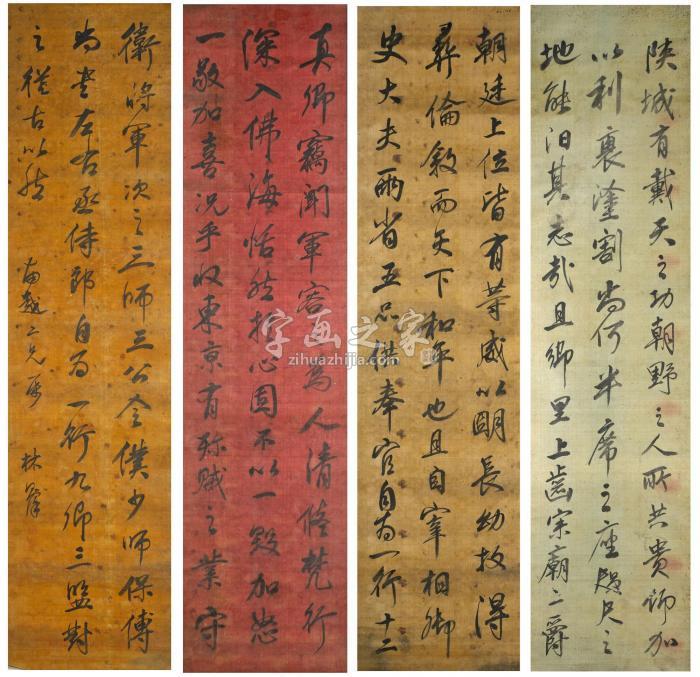 真卿竊聞軍容為人清修梵行
深入佛海恬然於心固不以一毀加怒
一敬加喜況乎收東京有殄賊之業守
陝城有戴天之功朝野之人所共貴仰加
以利衰塗割尚何半席之座咫尺之
地能汨其志哉且鄉里上齒宗廟上爵
朝廷上位皆有等威以明長幼故得
彝倫敘而天下和年也且自宰相御
史大夫兩省五品供奉官自為一行十二
衛將軍次之三師三公令僕少師保傅
尚書左右丞侍郎自為一行九卿三監對
之從古以然
二兄屬 林
字画之家
zihuazhijia.com